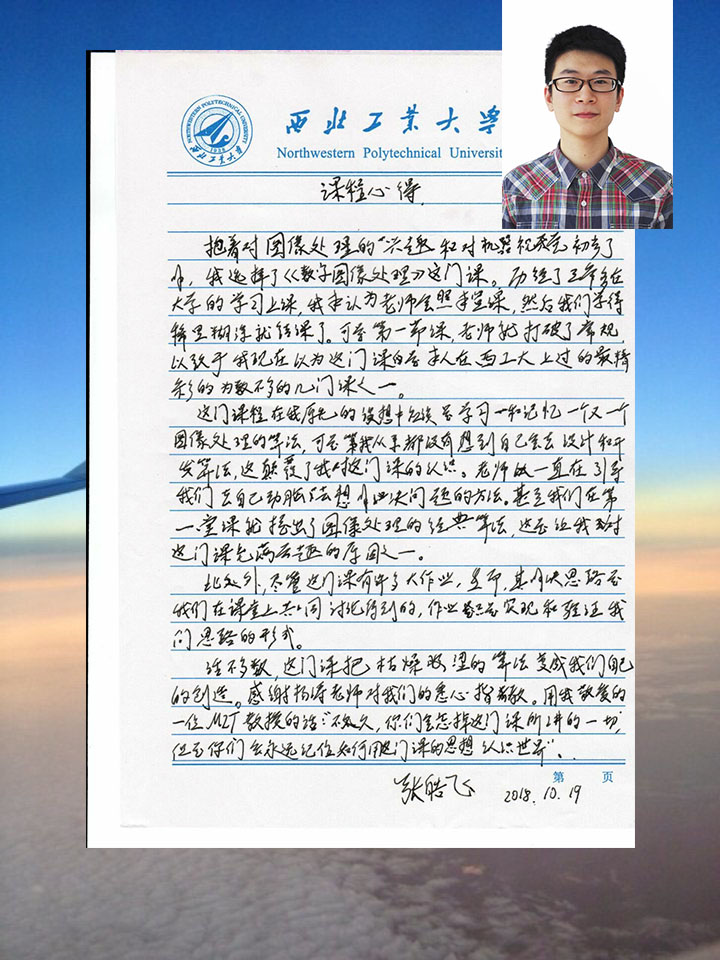 NORTHWESTERN POLYTECHNICAL UNIVERSITY
1938
西北工业大学
西北工业大学
Northwestern Polytechnical Universit
课程心得
抱着对图像处理的兴趣和对机器视觉的
我选择了《数字图像处理》这门课。历经了三年多在
大学的学习上课，我本认为老师会照本宣课，然后我们学得
稀里糊涂就结课了。可在第一节课，老师就打破了常规，
以致于我现在认为这门课是本人在西工大上过的最精
彩的为数不多的几门课之一。
这门课程在我原先的设想中应该是学习和记忆一个又一个
图像处理的算法，可是我从来都没有想到自己会去设计和开
发算法，这颠覆了我对这门课的认识。老师一直在引导
我们去自己动脑去想解决问题的方法。甚至我们在第
一堂课就提出了图像处理的经典算法，这是让我对
这门课充满兴趣的原因之一。
此外，尽管这门课有许多大作业，其解决思路是
我们在课堂上共同讨论得到的，作业只是实现和验证我
们思路的形式。
这门课把枯燥的算法变成我们自己
的创造。感谢杨涛老师对我们的悉心指教。用我敬爱的
一位MIT教授的话：“不久，你们会忘掉这门课所讲的一切，
但是你们会永远记住如何用这门课的思想认识世界”。
张皓飞 2018.10.19
第 页